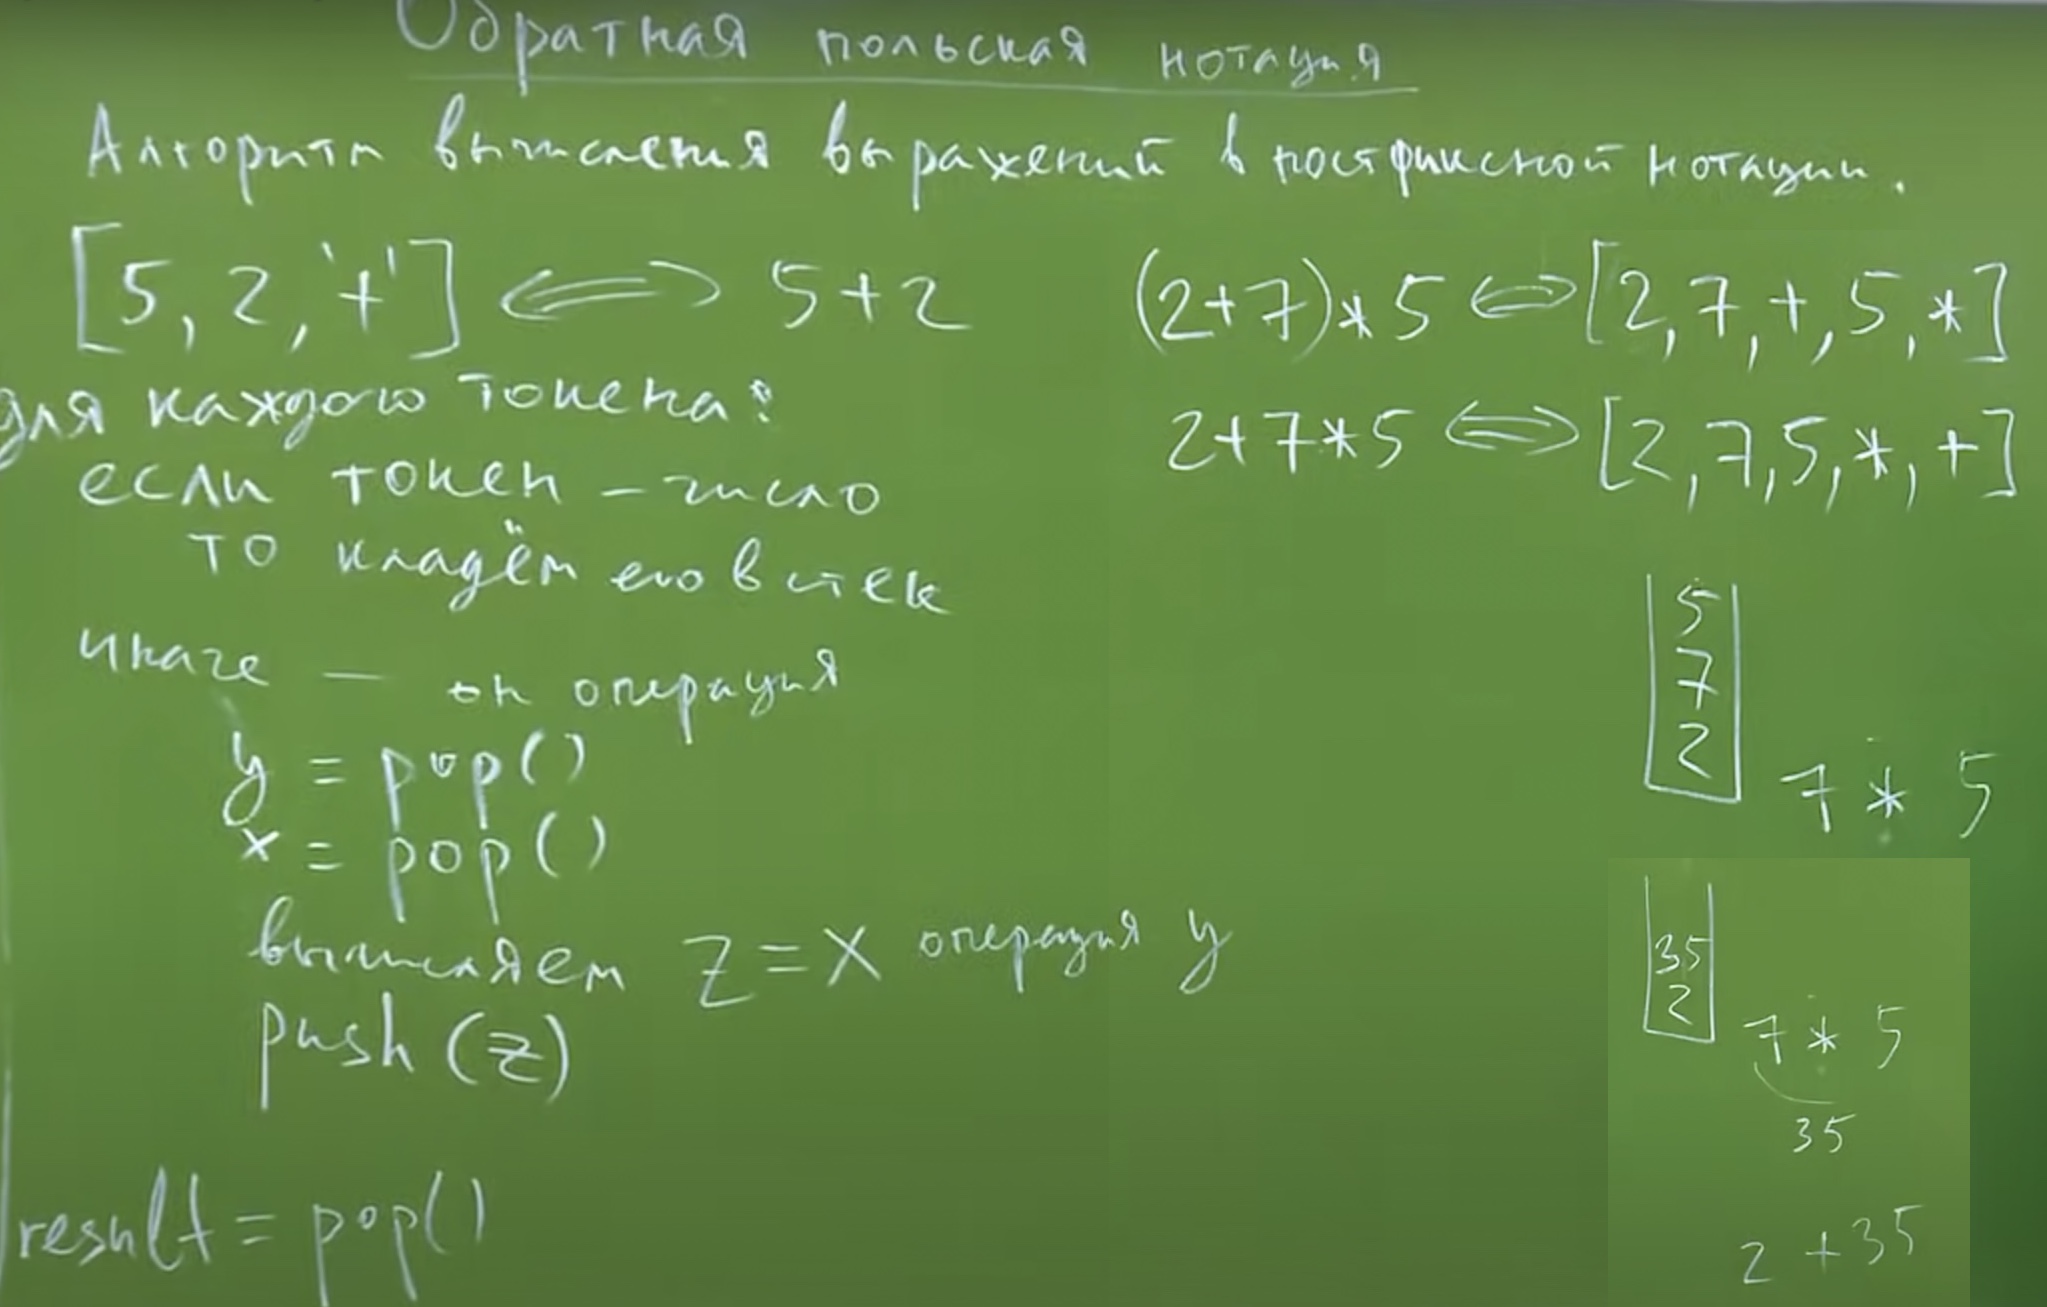 Обратная польская нотация
Алгоритм вычисления выражений в постфиксной нотации.
[5, 2, '+'] <=> 5+2
(2+7)*5 <=> [2, 7, +, 5, *]
2+7*5 <=> [2, 7, 5, *, +]
для каждого токена:
если токен - число
то кладём его в стек
иначе — он операция
y = pop()
x = pop()
вычисляем z = x операция y
push(z)
result = pop()
5
7
2
7 * 5
35
2
7 * 5
35
2 + 35